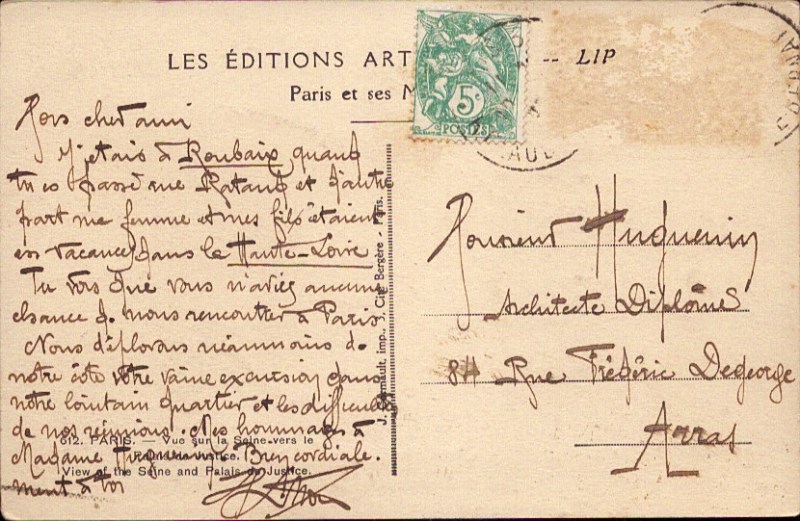 LES ÉDITIONS ART -- LIP
Paris et ses M
5c
POSTES
Mon cher ami
J'étais à Roubaix quand
tu es passé rue Rataud et d'autre
part ma femme et mes fils étaient
en vacances dans la Haute-Loire
Tu vois que vous n'aviez aucune
chance de nous rencontrer à Paris.
Nous déplorons néanmoins de
notre côté votre vaine excursion dans
notre lointain quartier et les difficultés
de nos réunions. Mes hommages à
Madame Huguenin. Bien cordiale-
ment à toi
612. PARIS. — Vue sur la Seine vers le
View of the Seine and Palais de Justice.
imp., Cité Bergère - Paris.
Monsieur Huguenin
Architecte Diplômé
84 Rue Frédéric Degeorge
Arras